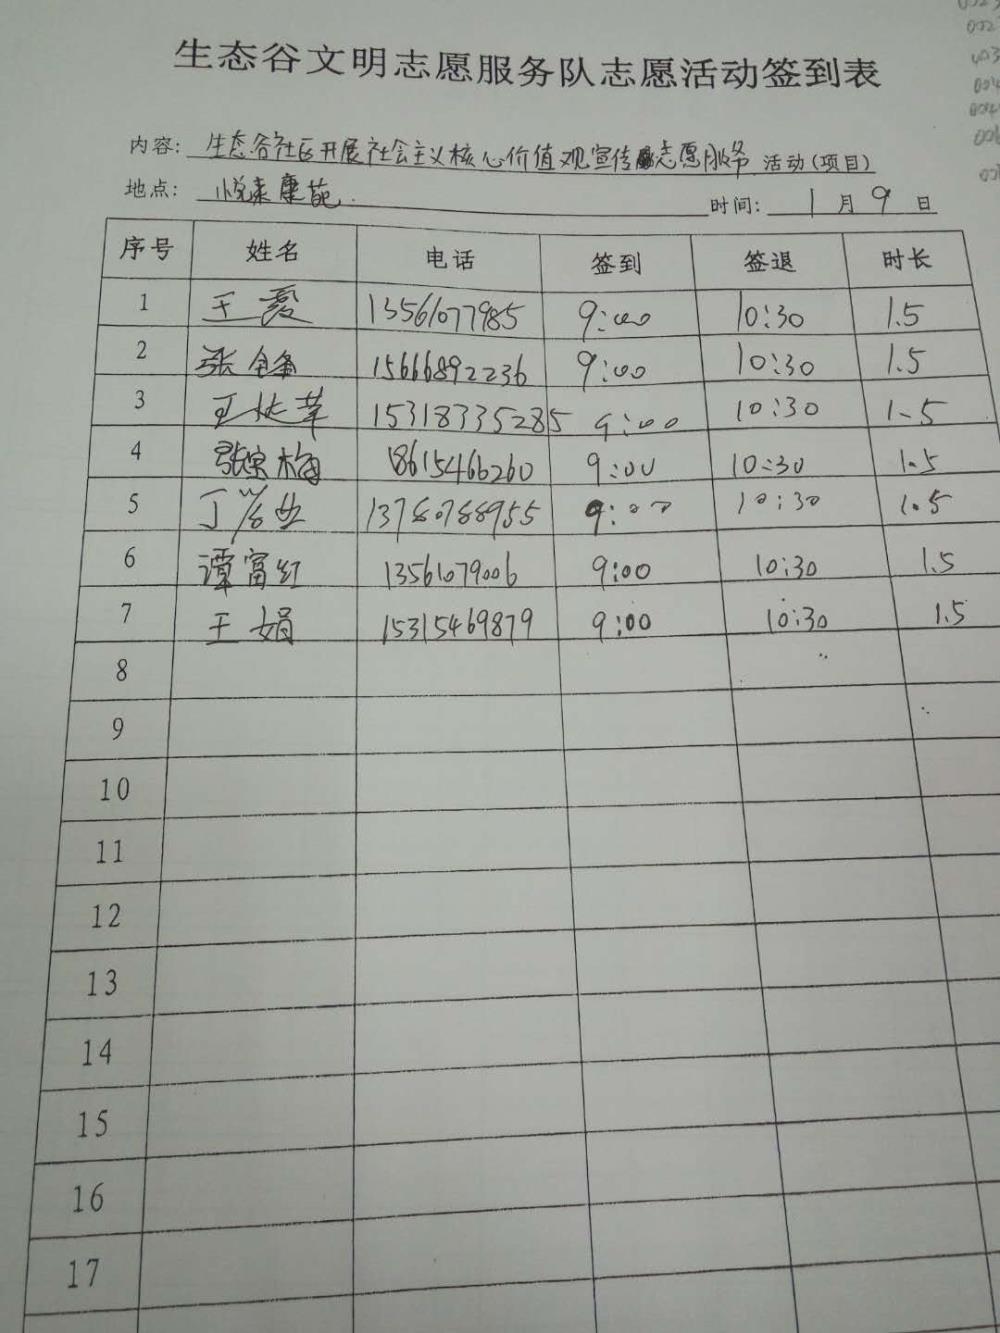 生态谷文明志愿服务队志愿活动签到表
内容: 生态谷社区开展社会主义核心价值观宣传志愿服务 活动(项目)
地点: 悦来康苑 时间: 1月9日
序号 姓名 电话 签到 签退 时长
1 王霞 13561077985 9:00 10:30 1.5
2 张 15666892236 9:00 10:30 1.5
3 王 15318335285 9:00 10:30 1.5
4 张宝梅 18615466260 9:00 10:30 1.5
5 丁 13780788955 9:00 10:30 1.5
6 谭富红 13561079006 9:00 10:30 1.5
7 王娟 15315469879 9:00 10:30 1.5
8
9
10
11
12
13
14
15
16
17